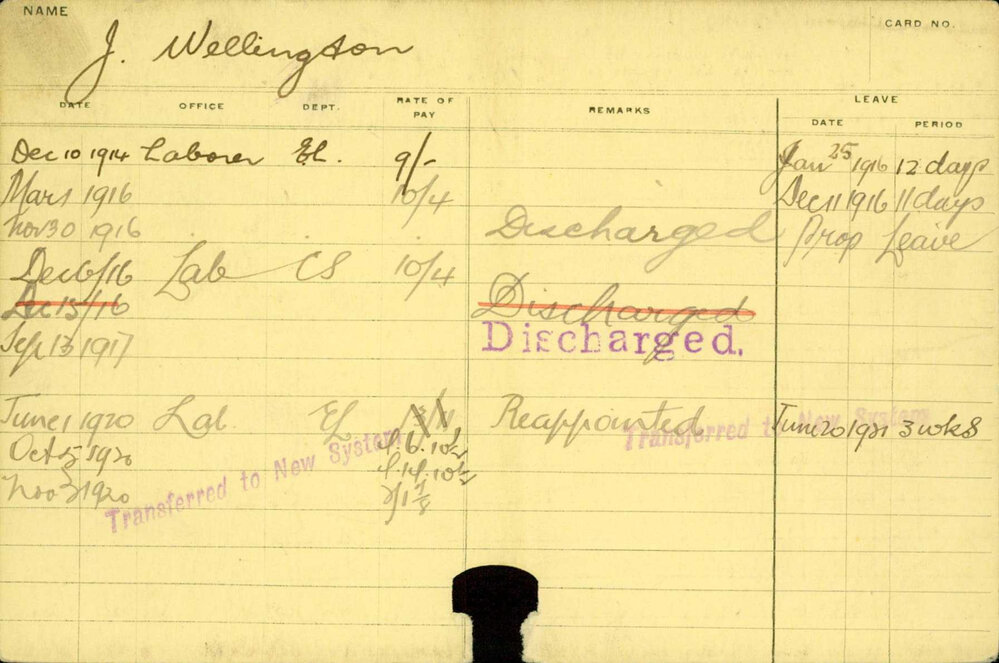 NAME
CARD NO.
J. Wellington
DATE OFFICE DEPT. RATE OF PAY REMARKS LEAVE
DATE PERIOD
Dec 10 1914 Laborer El. 9/- Jan 25 1916 12 days
Mar 1 1916 10/4 Dec 11 1916 11 days
Nov 30 1916 Discharged Prop Leave
Dec 6/16 Lab CS 10/4
Dec 15/16 Discharged
Sep 13 1917 Discharged.
June 1 1920 Lab. El Reappointed June 20 1921 3 wks
Transferred to New System
Oct 5 1920
Nov 3 1920
Transferred to New System